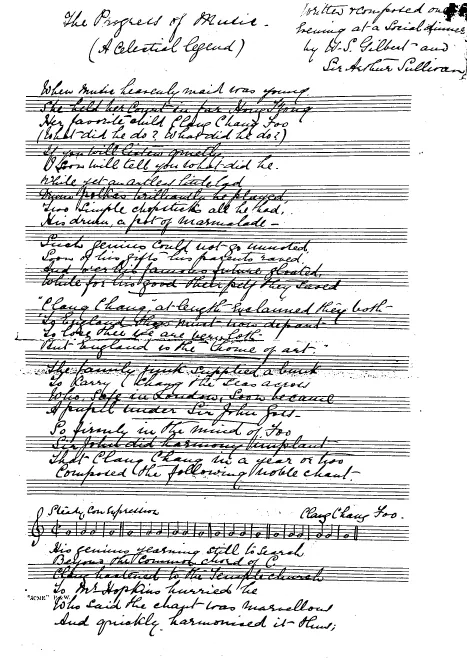 The Progress of Music.
(A Celestial legend)
Written & composed one
Evening at a Social dinner
by W. S. Gilbert and
Sir Arthur Sullivan
When Music heavenly maid was young
She held her Court in far Hong Kong
Her favorite child Clang Chang Foo
(What did he do? What did he do?)
If you will listen quietly
I soon will tell you what did he.
While yet an artless little lad
Divine polkas brilliantly he played
Two simple chopsticks all he had,
His drum, a pot of marmalade -
Such genius could not go unnoted
Soon of his gifts his parents raved,
And over his famous future gloated,
While for his good their pelf they saved
"Clang Chang" at length exclaimed they both
"To England thou must now depart
To lose thee we are very loth
But England is the home of art."
The family junk supplied a bunk
To carry Chang the seas across
Who, safe in London, soon became
A pupil under Sir John Goss -
So firmly in the mind of Foo
Sir John did harmony implant
That Clang Chang in a year or two
Composed the following noble chant.
Steady Con Espressione
Clang Chang Foo.
His genius yearning still to search
Beyond the Common chord of C.
Clang hastened to the Temple church
To Mr Hopkins hurried he
"ACME"
Who said the chant was marvellous
And quickly harmonised it thus;